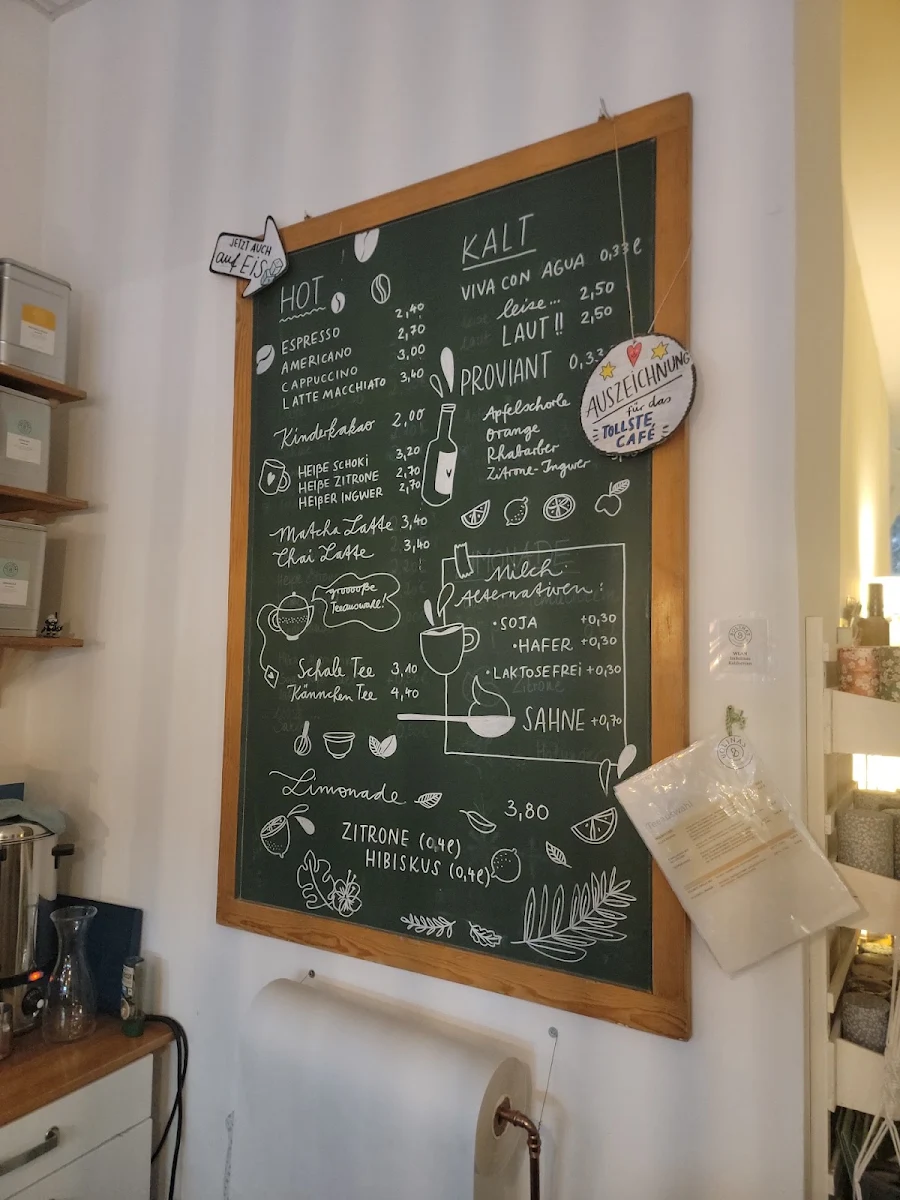 JETZT AUCH
auf EiS
HOT
ESPRESSO 2,40
AMERICANO 2,70
CAPPUCCINO 3,00
LATTE MACCHIATO 3,40
Kinderkakao 2,00
HEIẞE SCHOKI 3,20
HEIẞE ZITRONE 2,70
HEIẞER INGWER 2,70
Matcha Latte 3,40
Chai Latte 3,40
grooooße
Teeauswahl!
Schale Tee 3,10
Kännchen Tee 4,40
Limonade
3,80
ZITRONE (0,4l)
HIBISKUS (0,4l)
KALT
VIVA CON AGUA 0,33l
leise... 2,50
LAUT!! 2,50
PROVIANT 0,33
Apfelschorle
Orange
Rhabarber
Zitrone-Ingwer
Milch
Alternativen:
• SOJA +0,30
• HAFER +0,30
• LAKTOSEFREI +0,30
SAHNE +0,70
AUSZEICHNUNG
für das
TOLLSTE
CAFÉ